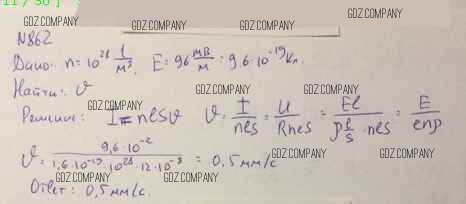 GDZ.COMPANY
GDZ.COMPANY GDZ.COMPANY GDZ.COMPANY
N862
GDZ.COMPANY
Дано: n = 10^28 1/м³ E = 96 мВ/м : 9,6·10^-19 Кл
Найти: v
GDZ.COMPANY GDZ.COMPANY GDZ.COMPANY
Решение: I = nesv v = I/nes = U/Rnes = El/(ρ l/s · nes) = E/enρ
v = 9,6·10^-2 / 1,6·10^-19·10^28·12·10^-8 = 0,5 мм/с
GDZ.COMPANY GDZ.COMPANY
Ответ: 0,5 мм/с.
GDZ.COMPANY GDZ.COMPANY